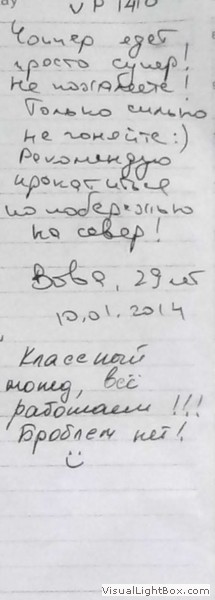 VP 1410
Чоппер едет
просто супер!
Не пожалеете!
Только сильно
не гоняйте :)
Рекомендую
прокатиться
по побережью
на север!
Вова, 29 лет
10.01.2014
Классный
мопед, всё
работает!!!
Проблем нет!
VisualLightBox.com